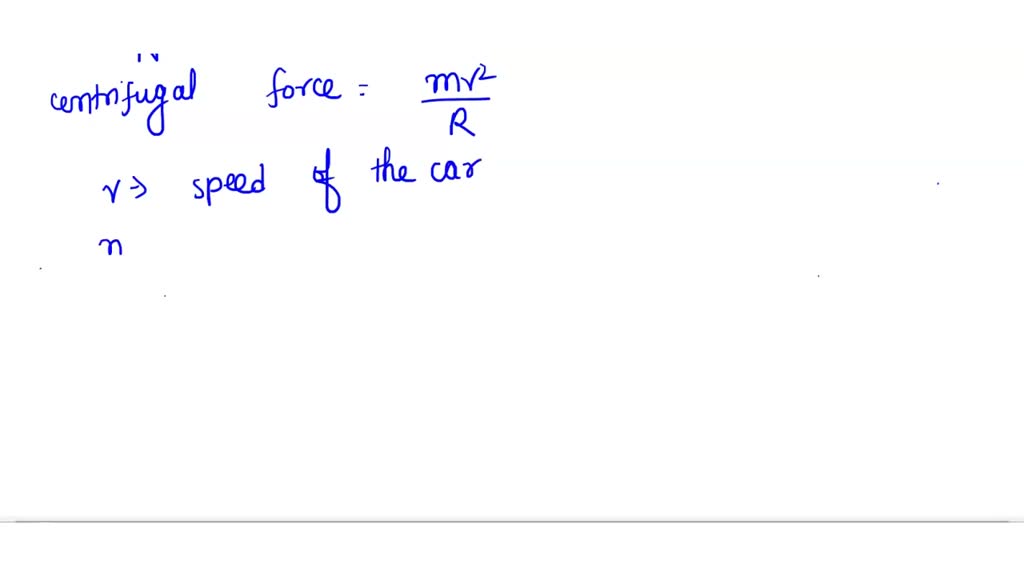 centrifugal force = mv²/R
v ⇒ speed of the car
n